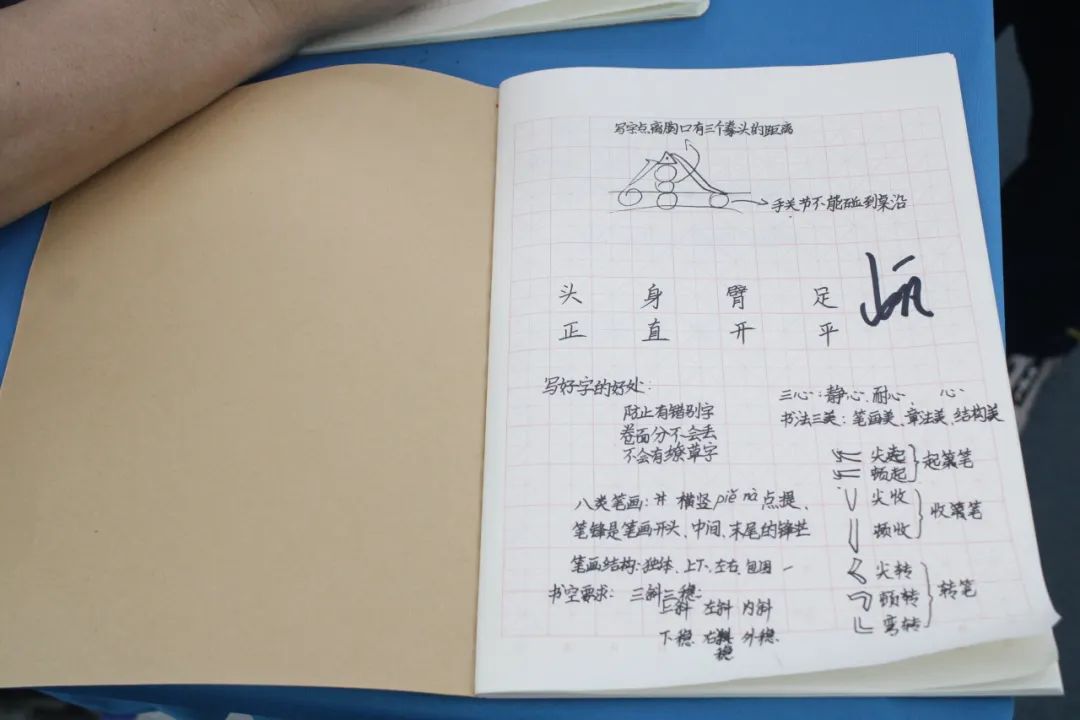 写字点离胸口有三个拳头的距离
手关节不能碰到桌沿
头 身 臂 足
正 直 开 平
写好字的好处:
防止有错别字
卷面分不会丢
不会有缭草字
三心:静心、耐心、 心
书法三美:笔画美、章法美、结构美
尖起
顿起
起笔
尖收
顿收
收笔
尖转
顿转
弯转
转笔
八类笔画: 横竖piě nà点提、
笔锋是笔画开头、中间、末尾的锋芒
笔画结构:独体、上下、左右、包围
书空要求: 三斜三稳:
上斜 左斜 内斜
下稳 右 外稳
稳